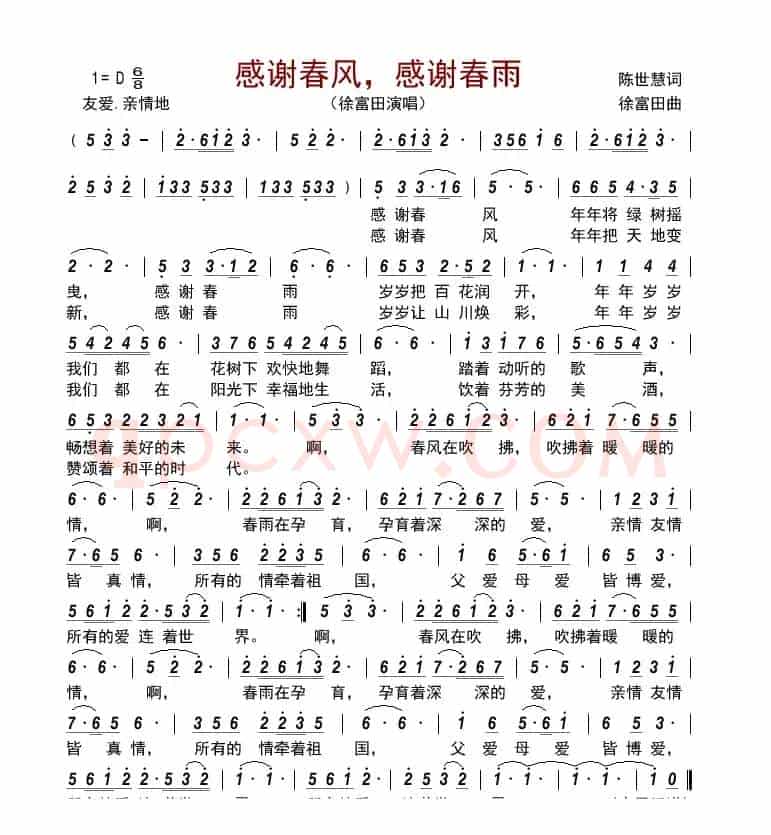 感谢春风，感谢春雨
1= D 6/8
陈世慧词
友爱.亲情地
（徐富田演唱）
徐富田曲
( 5 3 3 - | 2·612 3· | 5 2 2 · | 2·612 3· | 356 1 6 |
2 5 3 2 | 133 533 | 133 533 ) | 5 33 3·16 | 5· 5· | 665 4·35 |
感 谢春 风 年年将 绿 树摇
感 谢春 风 年年把 天 地变
2· 2· | 5 33 3·12 | 6· 6· | 653 2·52 | 1· 1· | 11 44 |
曳， 感 谢 春 雨 岁岁把 百 花润 开， 年 年 岁 岁
新， 感 谢 春 雨 岁岁让 山 川焕 彩， 年 年 岁 岁
54245 6· | 376 54562 | 6· 6· | 13 176 | 5·654 3· |
我们 都 在 花树下 欢快地舞 蹈， 踏着 动听的 歌 声，
我们 都 在 阳光下 幸福地生 活， 饮着 芬芳的 美 酒，
6532 2321 | 1· 1· | 5 33 · | 22612 3· | 6217·655 |
畅想着 美好的未 来。 啊， 春风在吹 拂， 吹拂着 暖 暖的
赞颂着 和平的时 代。
6· 6· | 5 22 · | 22613 2· | 621 7·267 | 5· 5· | 1223 |
情， 啊， 春雨在孕 育， 孕育着深 深的 爱， 亲情 友情
7·65 6· | 356 22235 | 2· 2· | 16 56 | 6·52 3· |
皆 真 情， 所有的 情牵着祖 国， 父 爱 母 爱 皆 博 爱，
5612 2·532 | 1· 1· :‖ 5 33 · | 22612 3· | 6217·655 |
所有的爱 连 着世 界。 啊， 春风在吹 拂， 吹拂着暖 暖的
6· 6· | 5 22 · | 22613 2· | 621 7·267 | 5· 5· | 1223 |
情， 啊， 春雨在孕 育， 孕育着深 深的 爱， 亲情 友情
7·65 6· | 356 22235 | 2· 2· | 16 56 | 6·52 3· |
皆 真 情， 所有的 情牵着祖 国， 父 爱 母 爱 皆 博 爱，
5612 2·532 | 1· 1· | 5612 2·532 | 1· 1· | 1· 1· | 10 ‖